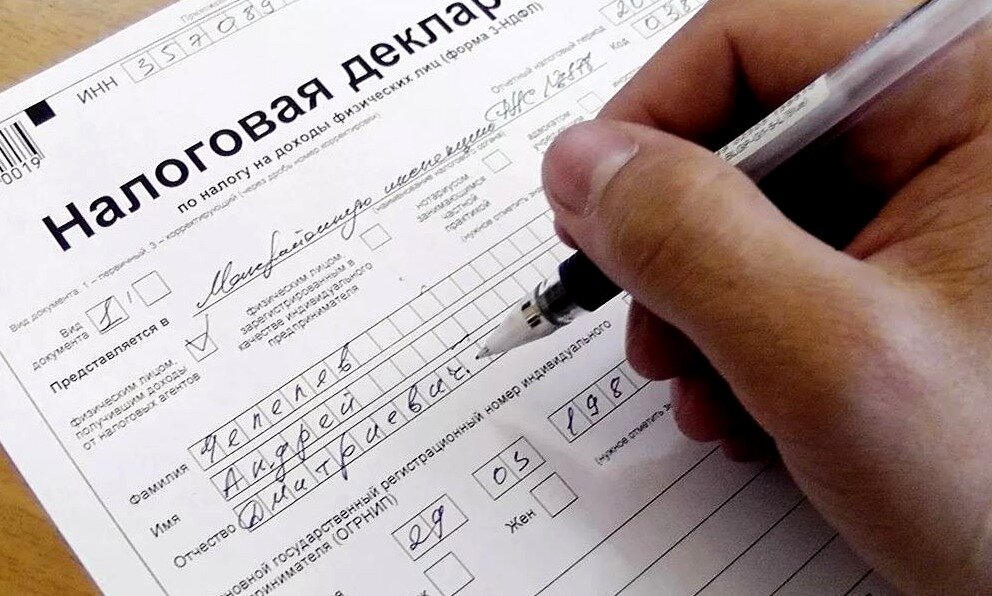 ИНН 3570089
0019
Налоговая деклар
по налогу на доходы физических лиц (форма 3-НДФЛ)
Отчетный налоговый период 20
Код 038
Вид документа: 1 – первичный, 3 – корректирующий (через дробь номер корректировки)
Вид документа 1 /
Представляется в Межрайонную инспекцию ФНС №
(наименование налогового органа)
физическим лицом, получившим доходы от налоговых агентов
физическим лицом, зарегистрированным в качестве индивидуального предпринимателя
нотариусом, занимающимся частной практикой
адвокатом
(нужное отметить зн
Фамилия Чепепев
Имя Андрей
Отчество Дмитриевич
сновной государственный регистрационный номер индивидуального
принимателя (ОГРНИП)
29 03 198
Жен
(нужное отметить зн